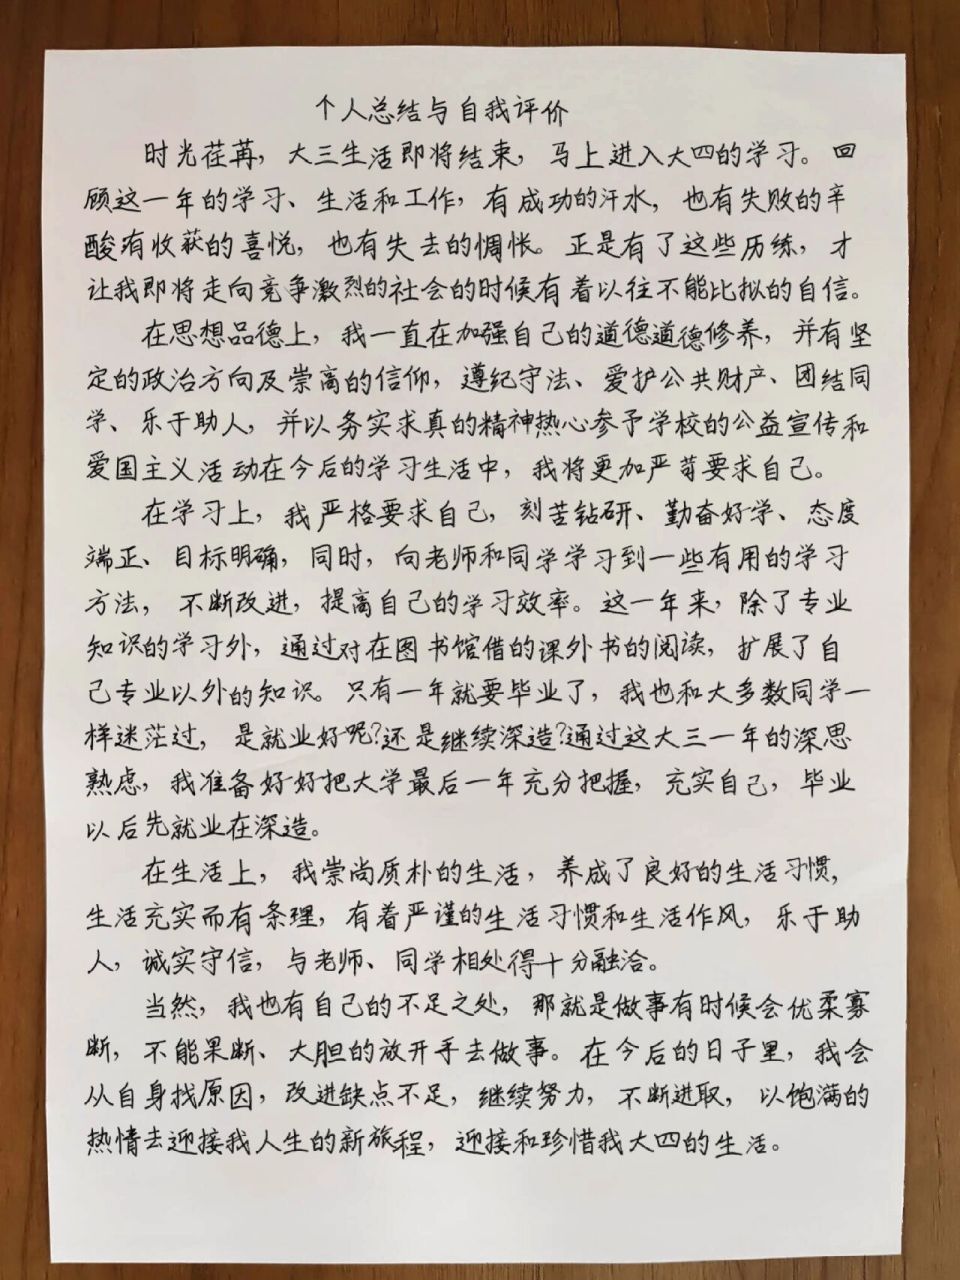 个人总结与自我评价
时光荏苒，大三生活即将结束，马上进入大四的学习。回
顾这一年的学习、生活和工作，有成功的汗水，也有失败的辛
酸有收获的喜悦，也有失去的惆怅。正是有了这些历练，才
让我即将走向竞争激烈的社会的时候有着以往不能比拟的自信。
在思想品德上，我一直在加强自己的道德道德修养，并有坚
定的政治方向及崇高的信仰，遵纪守法、爱护公共财产、团结同
学、乐于助人，并以务实求真的精神热心参予学校的公益宣传和
爱国主义活动在今后的学习生活中，我将更加严苛要求自己。
在学习上，我严格要求自己，刻苦钻研、勤奋好学、态度
端正、目标明确，同时，向老师和同学学习到一些有用的学习
方法，不断改进，提高自己的学习效率。这一年来，除了专业
知识的学习外，通过对在图书馆借的课外书的阅读，扩展了自
己专业以外的知识。只有一年就要毕业了，我也和大多数同学一
样迷茫过，是就业好呢?还是继续深造?通过这大三一年的深思
熟虑，我准备好好把大学最后一年充分把握，充实自己，毕业
以后先就业在深造。
在生活上，我崇尚质朴的生活，养成了良好的生活习惯，
生活充实而有条理，有着严谨的生活习惯和生活作风，乐于助
人，诚实守信，与老师、同学相处得十分融洽。
当然，我也有自己的不足之处，那就是做事有时候会优柔寡
断，不能果断、大胆的放开手去做事。在今后的日子里，我会
从自身找原因，改进缺点不足，继续努力，不断进取，以饱满的
热情去迎接我人生的新旅程，迎接和珍惜我大四的生活。